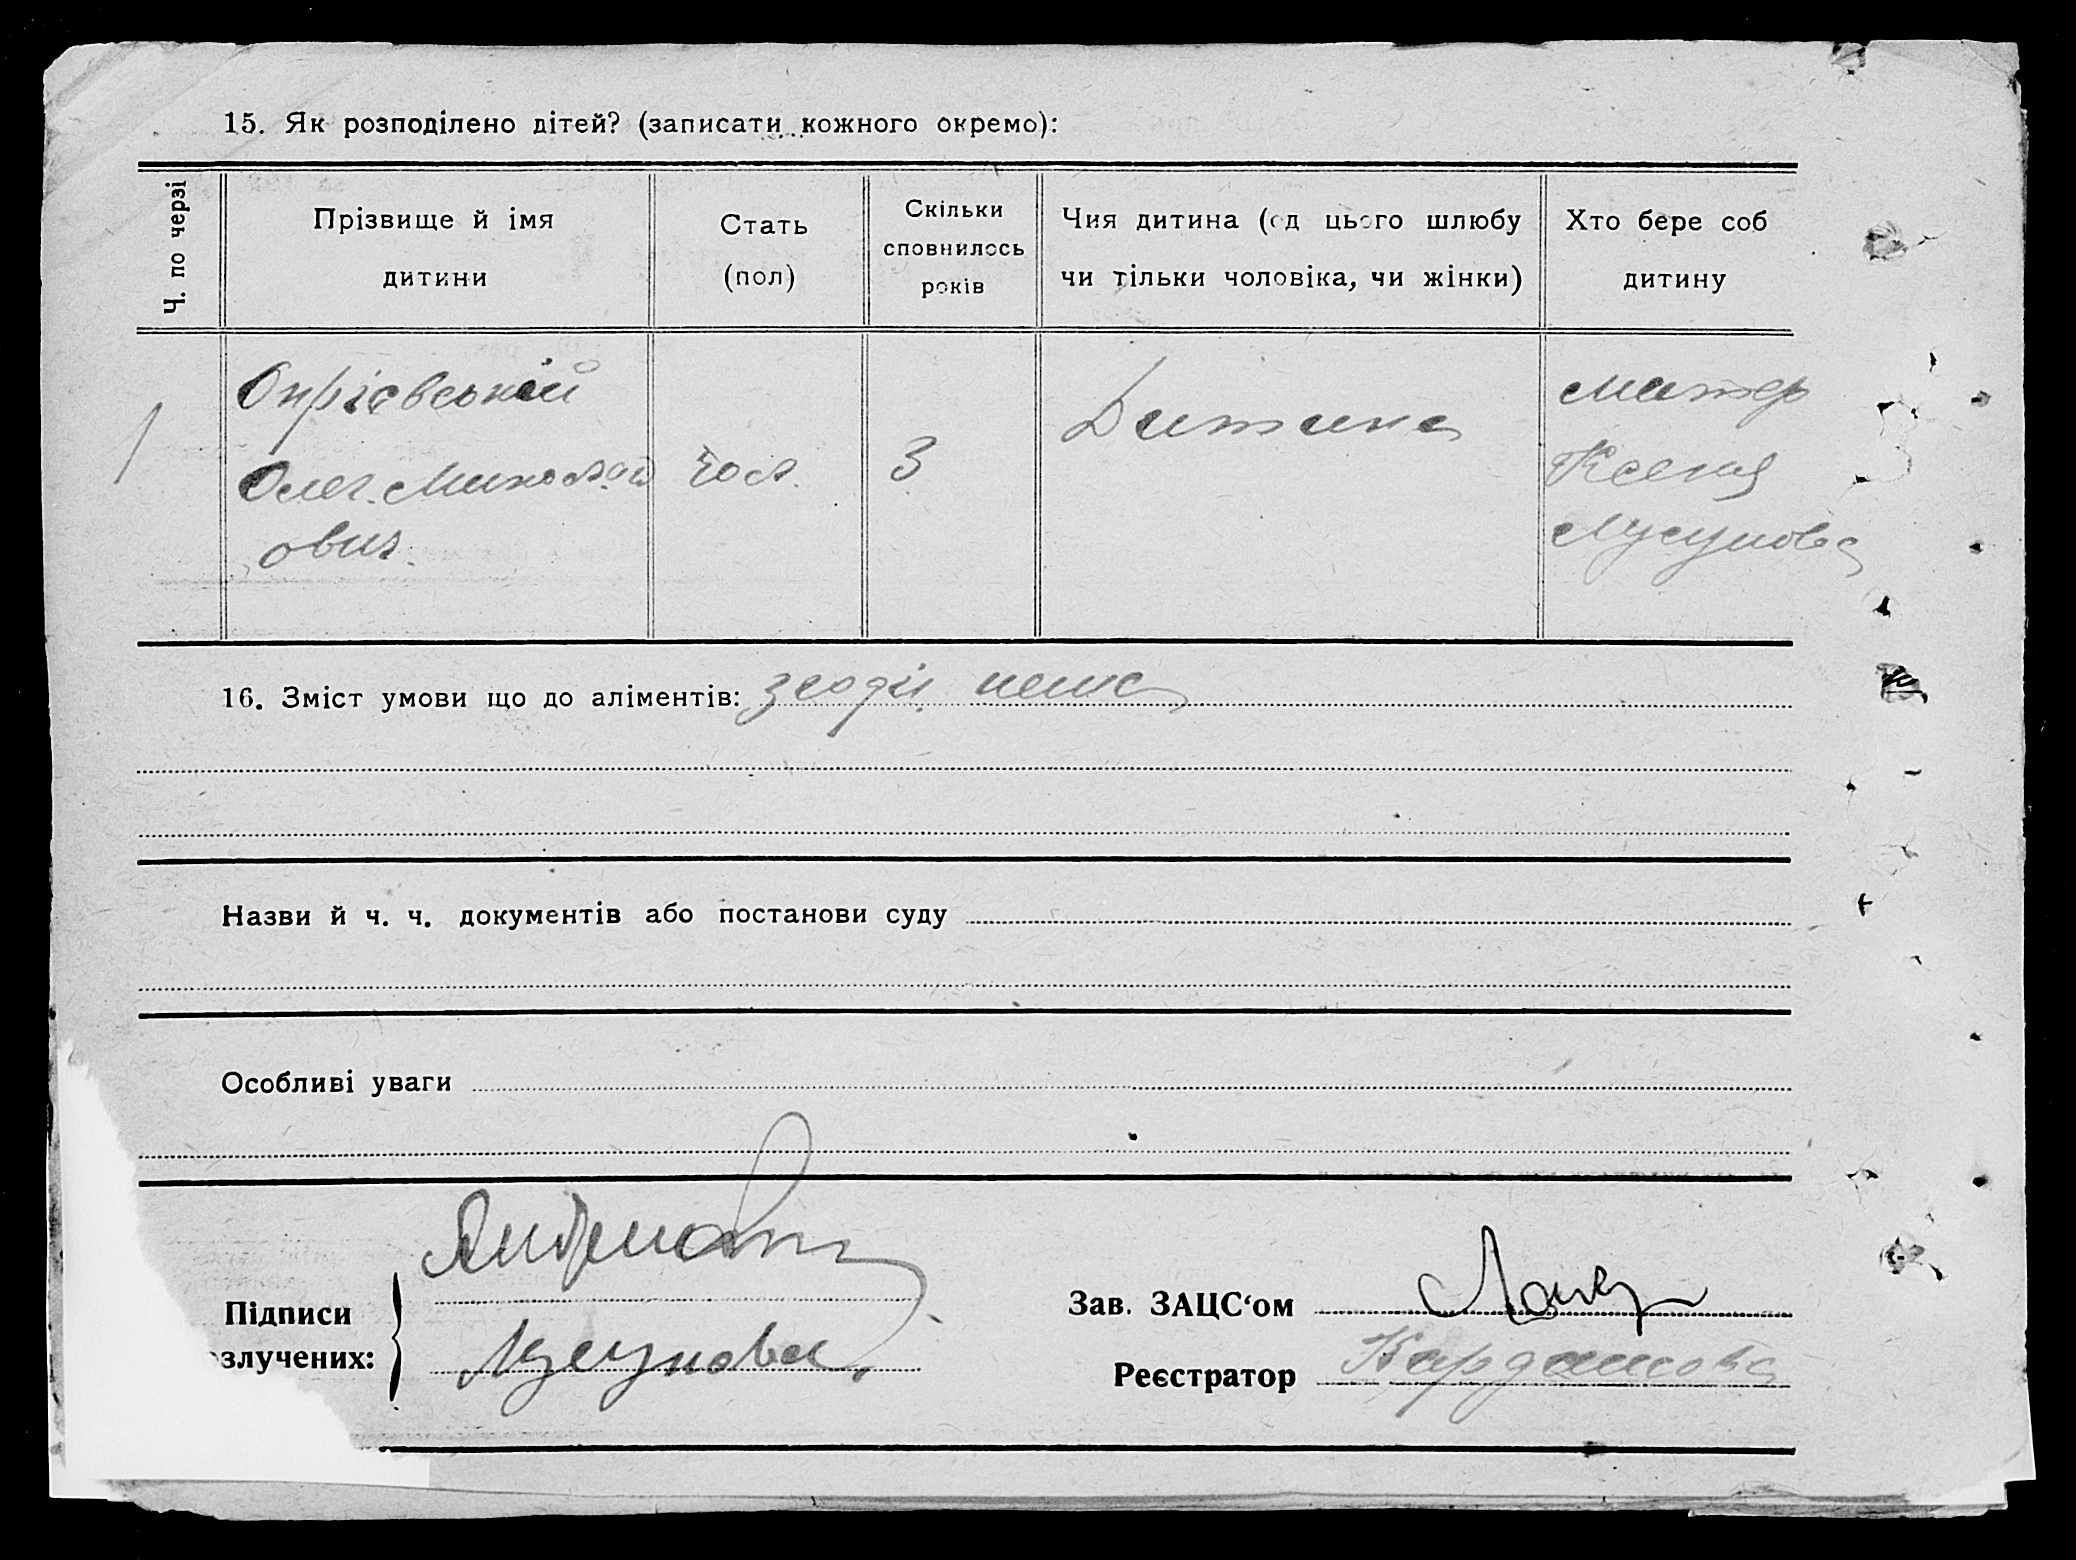 15. Як розподілено дітей? (записати кожного окремо):
Ч. по черзі
Прізвище й імя
дитини
Стать
(пол)
Скільки
сповнилось
років
Чия дитина (од цього шлюбу
чи тільки чоловіка, чи жінки)
Хто бере соб
дитину
1
Олег
ович
чол.
3
Дитина
матер
Ксенія
Лусунова
16. Зміст умови що до аліментів: згоди нема
Назви й ч. ч. документів або постанови суду
Особливі уваги
Підписи
озлучених:
Лусунова
Зав. ЗАЦС‘ом
Реєстратор Кардашова